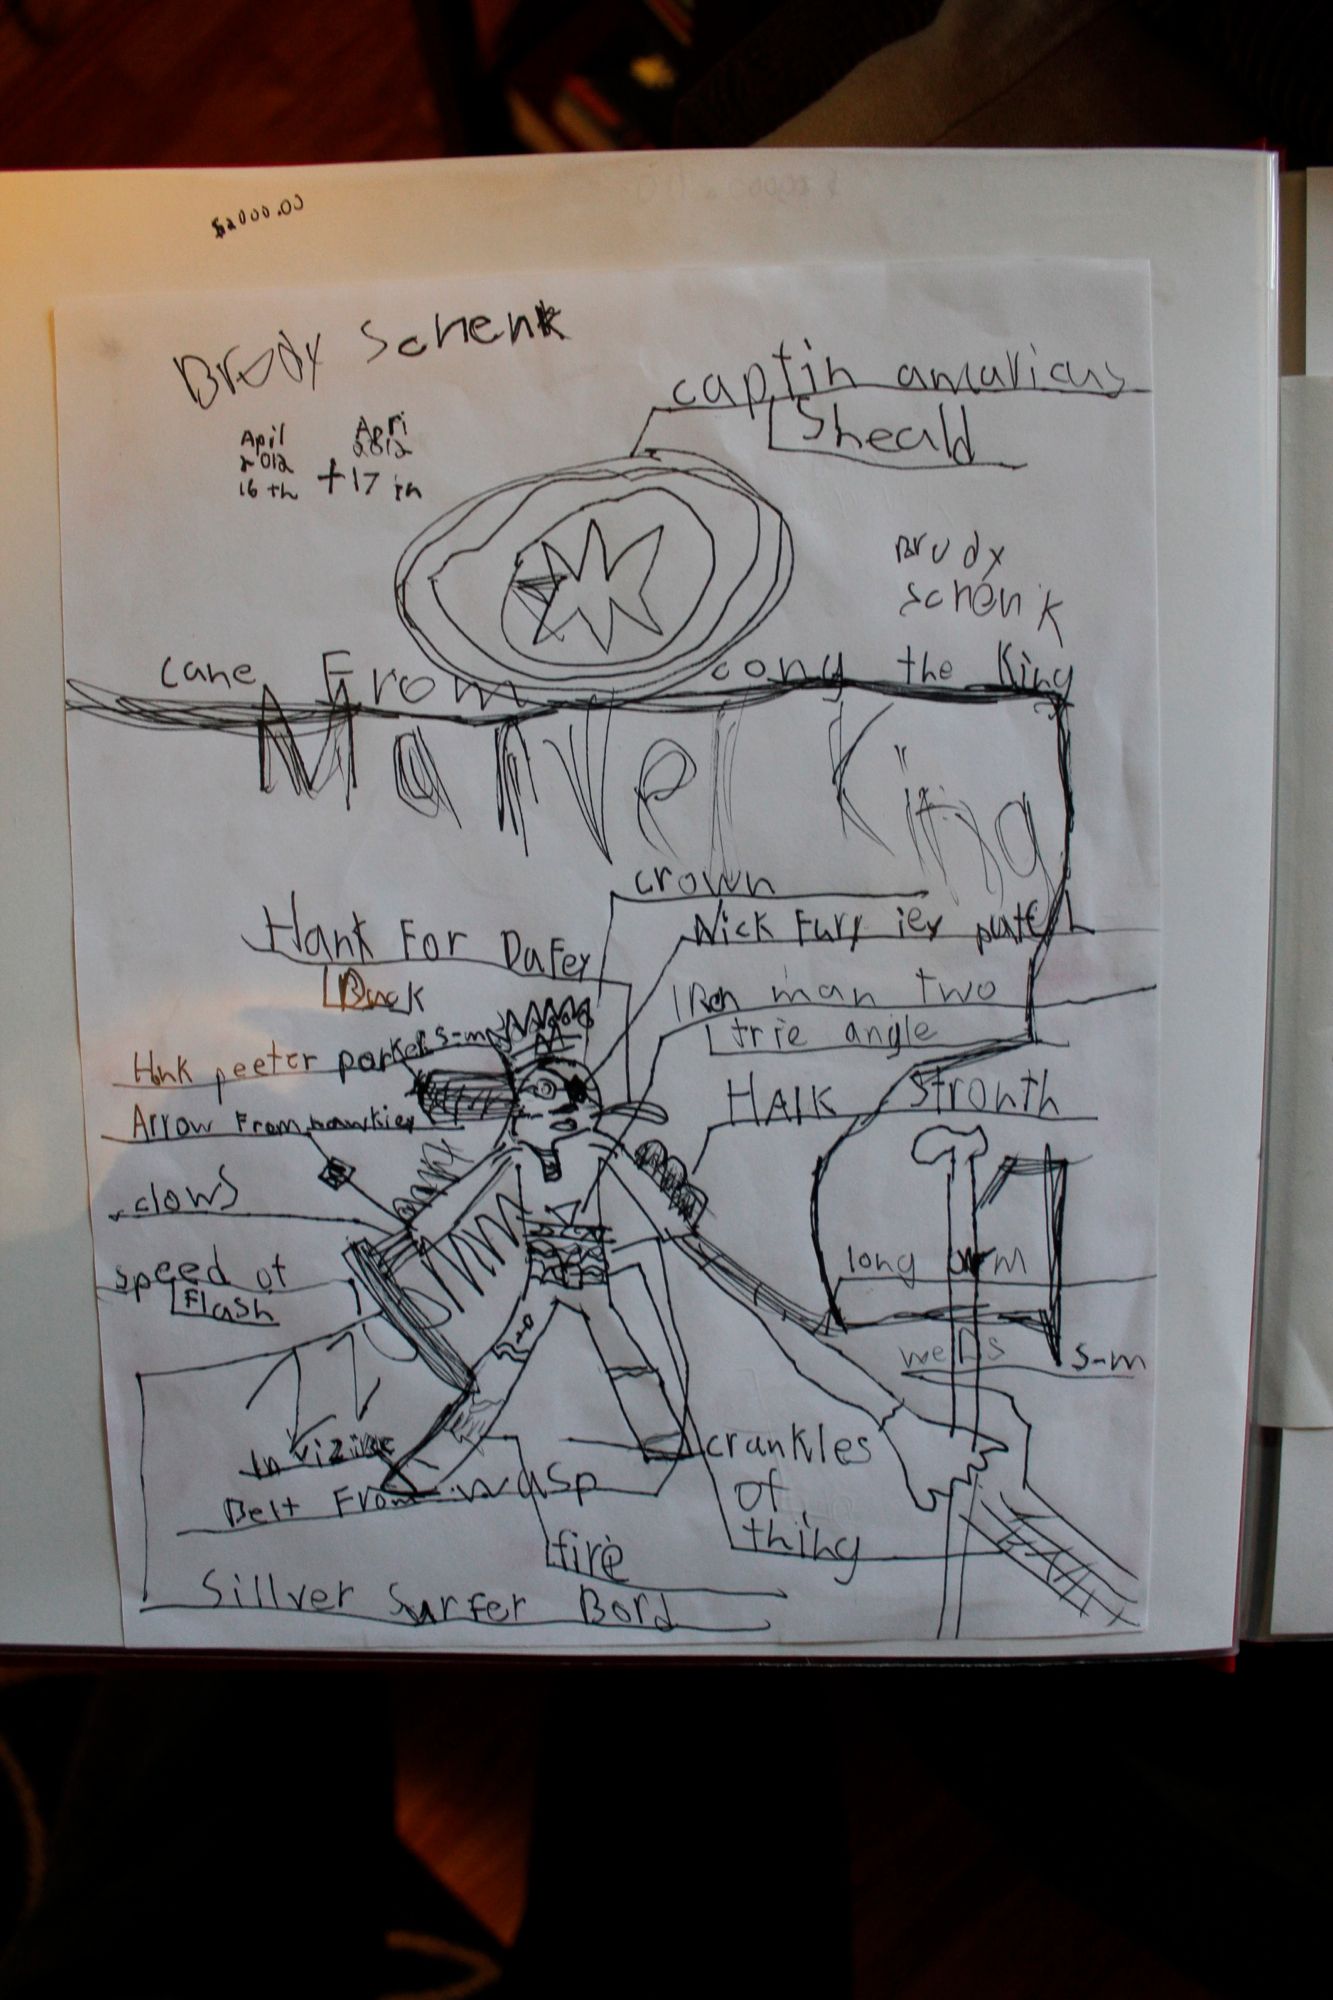 $2000.00
Brody Schenk
captin amaricus
Sheald
April
2012
16 th
+
Apri
2012
17 th
Brody
Schenk
cane From cony the King
Marvel King
crown
Hank For Dafey
Duck
Nick Fury iey patch
Iron man two
trie angle
Hnk peeter parker s-m
Arrow From hawkiey
HAlk Stronth
clows
long arm
speed of
Flash
webs s-m
In vizible
Belt From wasp
crankles
of
thing
fire
Sillver Surfer Bord